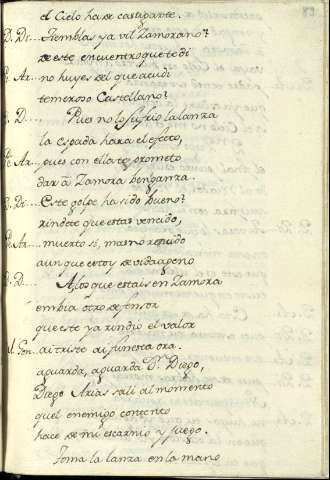 el Cielo ha de castigarte.
D. Di... Tiemblas ya vil Zamorano?
de este encuentro que te di
P. Ar... no huyes del que acudi
temeroso Castellano?
D. D.... Pues no lo sufrio la lanza
la espada hara el efeto,
P. Ar... pues con ella te prometo
dar â Zamora benganza.
D. Di... Este golpe ha sido bueno?
rindete que estas vencido,
P. Ar... muerto si, mas no rendido
aunque estoy de vida ageno
D. D.... A los que estais en Zamora
embia otro defensor
que este ya rindio el valor
Gon... ai triste ai funesta ora.
aguarda, aguarda Dn. Diego,
Diego Arias sali al momento
quel enemigo contento
hace de mi escarnio y juego.
Toma la lanza en la mano